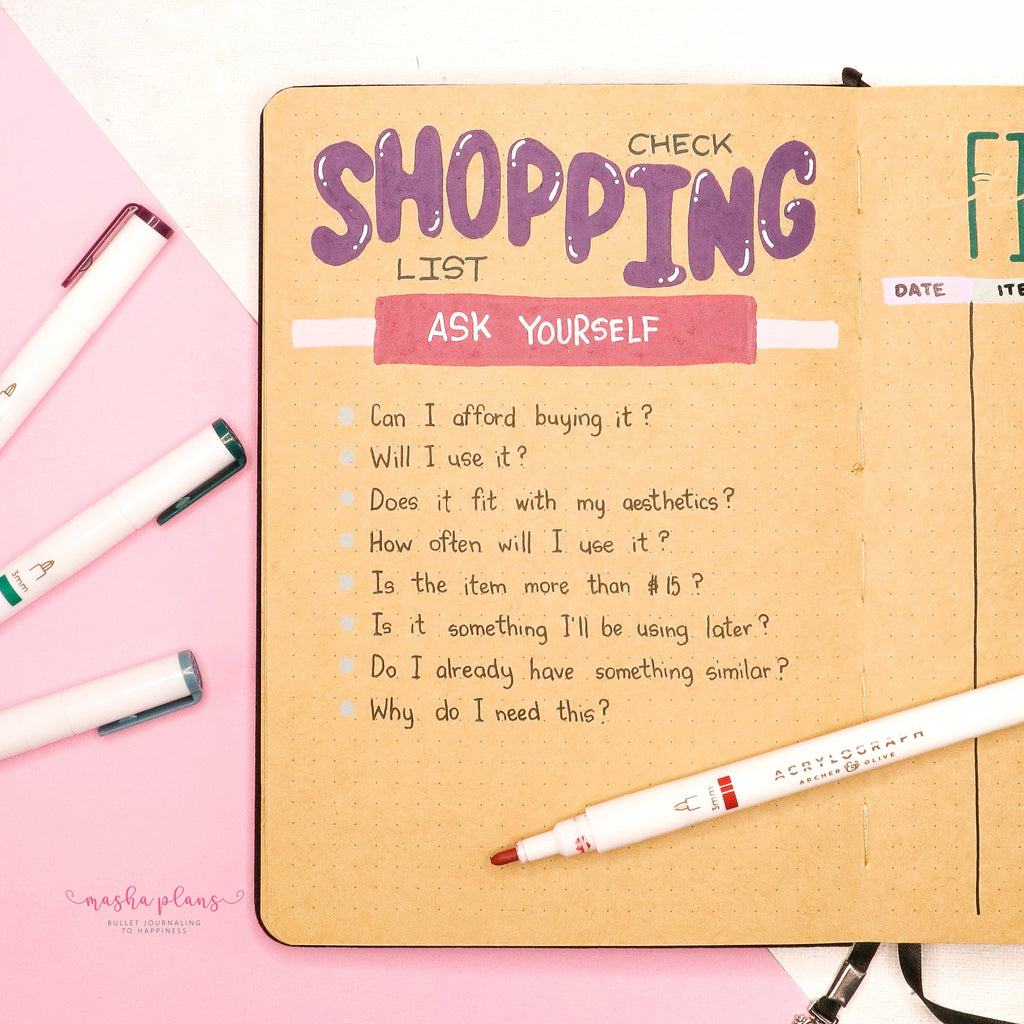 SHOPPING
CHECK
LIST
ASK YOURSELF
Can I afford buying it?
Will I use it?
Does it fit with my aesthetics?
How often will I use it?
Is the item more than $15?
Is it something I'll be using later?
Do I already have something similar?
Why do I need this?
DATE
3mm
3mm
ACRYLOGRAPH
ARCHER & OLIVE
masha plans
BULLET JOURNALING
TO HAPPINESS